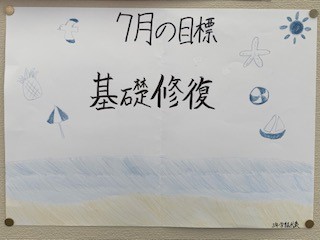 7月の目標
基礎修復